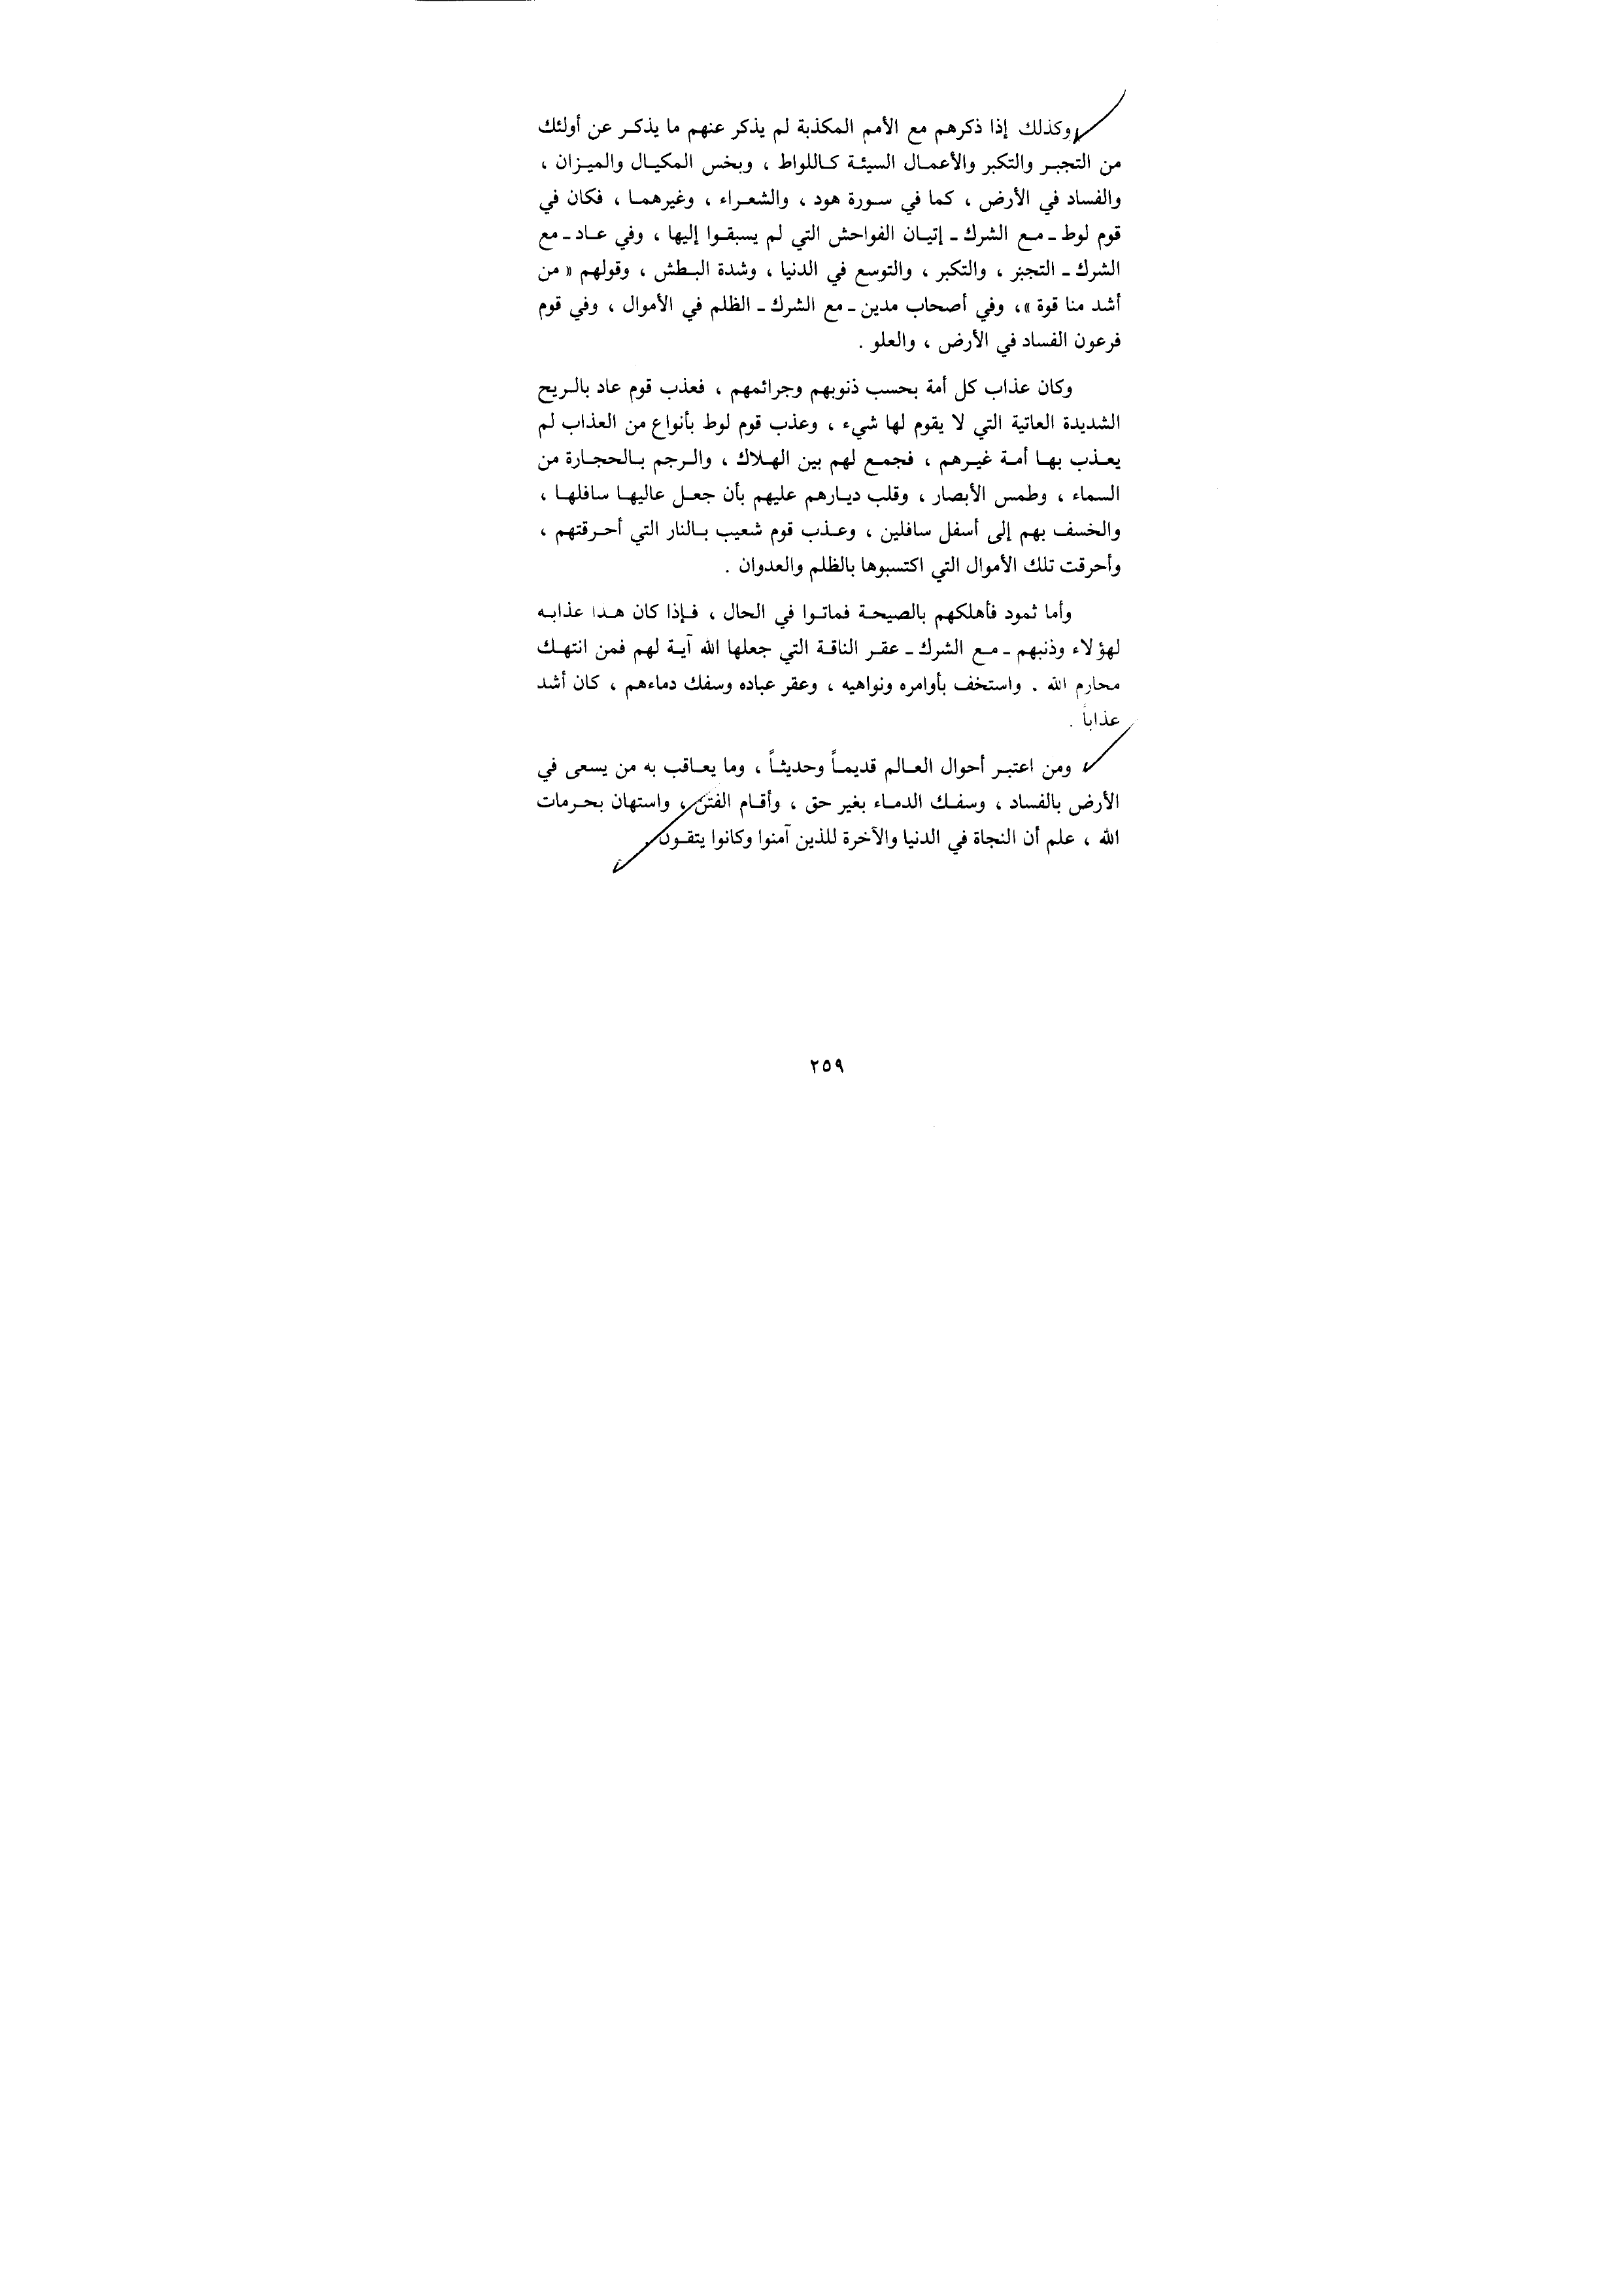 وكذلك إذا ذكرهم مع الأمم المكذبة لم يذكر عنهم ما يذكر عن أولئك
من التجبر والتكبر والأعمال السيئة كاللواط ، وبخس المكيال والميزان ،
والفساد في الأرض ، كما في سورة هود ، والشعراء ، وغيرهما ، فكان في
قوم لوط ـ مع الشرك ـ إتيان الفواحش التي لم يسبقوا إليها ، وفي عاد ـ مع
الشرك ـ التجبر ، والتكبر ، والتوسع في الدنيا ، وشدة البطش ، وقولهم « من
أشد منا قوة »، وفي أصحاب مدين ـ مع الشرك ـ الظلم في الأموال ، وفي قوم
فرعون الفساد في الأرض ، والعلو .
وكان عذاب كل أمة بحسب ذنوبهم وجرائمهم ، فعذب قوم عاد بالريح
الشديدة العاتية التي لا يقوم لها شيء ، وعذب قوم لوط بأنواع من العذاب لم
يعذب بها أمة غيرهم ، فجمع لهم بين الهلاك ، والرجم بالحجارة من
السماء ، وطمس الأبصار ، وقلب ديارهم عليهم بأن جعل عاليها سافلها ،
والخسف بهم إلى أسفل سافلين ، وعذب قوم شعيب بالنار التي أحرقتهم ،
وأحرقت تلك الأموال التي اكتسبوها بالظلم والعدوان .
وأما ثمود فأهلكهم بالصيحة فماتوا في الحال ، فإذا كان هذا عذابه
لهؤلاء وذنبهم ـ مع الشرك ـ عقر الناقة التي جعلها الله آية لهم فمن انتهك
محارم الله . واستخف بأوامره ونواهيه ، وعقر عباده وسفك دماءهم ، كان أشد
عذاباً .
ومن اعتبر أحوال العالم قديماً وحديثاً ، وما يعاقب به من يسعى في
الأرض بالفساد ، وسفك الدماء بغير حق ، وأقام الفتن ، واستهان بحرمات
الله ، علم أن النجاة في الدنيا والآخرة للذين آمنوا وكانوا يتقون .
٢٥٩